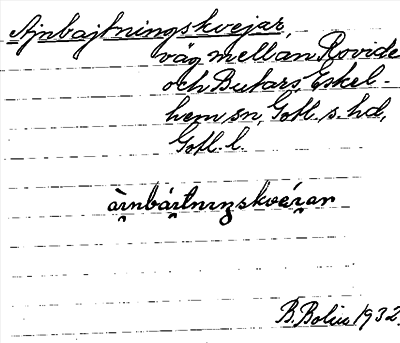 Ajnbajtningskvejar,
väg mellan Rovide
och Butars, Eskel-
hem sn, Gotl. s. hd,
Gotl. l.
B. Bolin 1932.